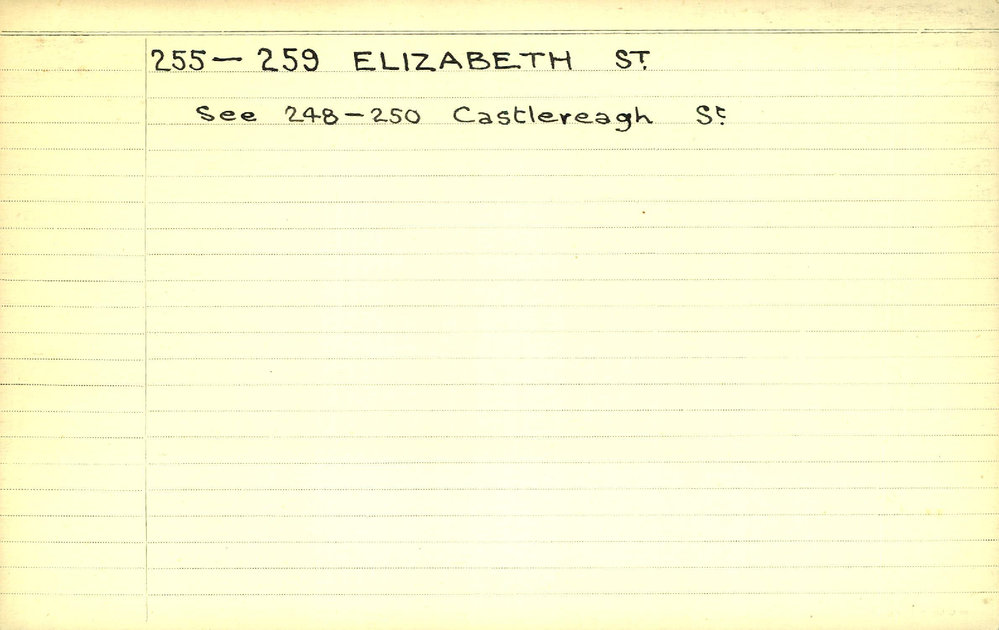 255 - 259 ELIZABETH ST.
See 248-250 Castlereagh St